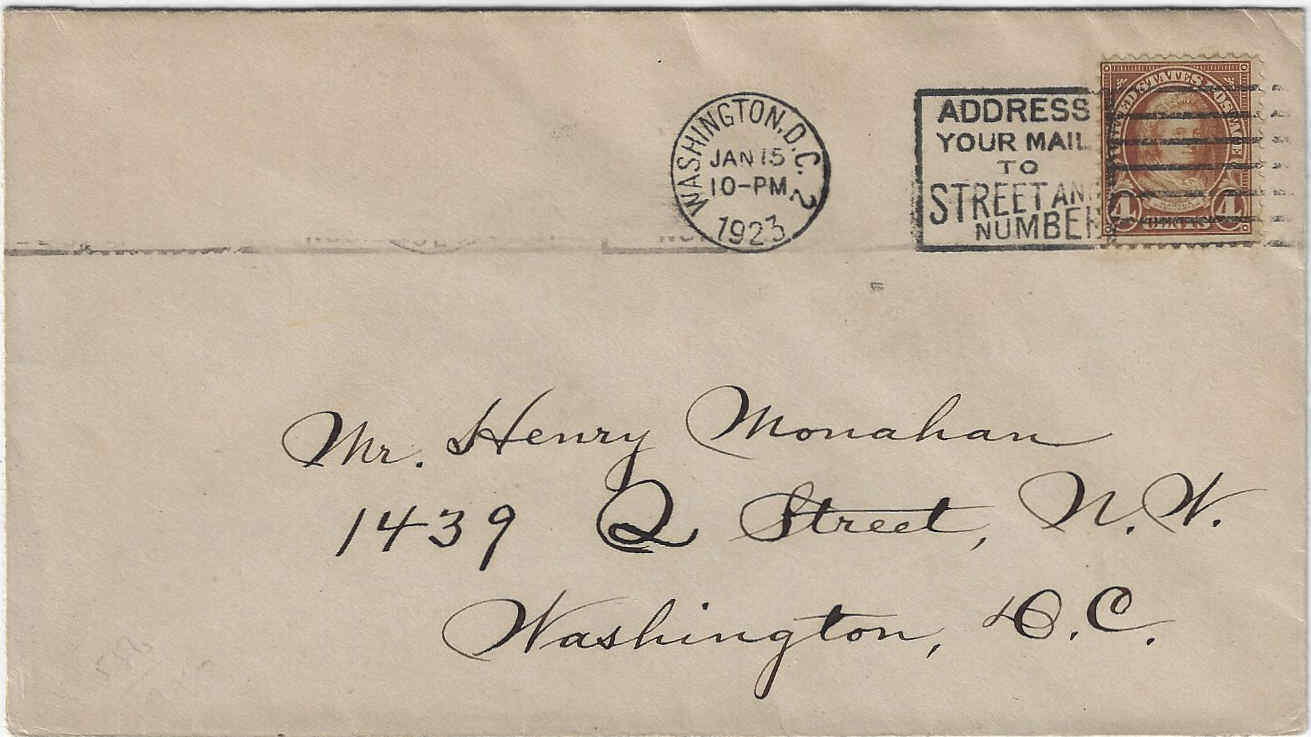 WASHINGTON, D.C. 2
JAN 15
10-PM
1923
ADDRESS
YOUR MAIL
TO
STREET AND
NUMBER
UNITED STATES POSTAGE
4 CENTS 4
Mr. Henry Monahan
1439 Q Street, N.W.
Washington, D.C.